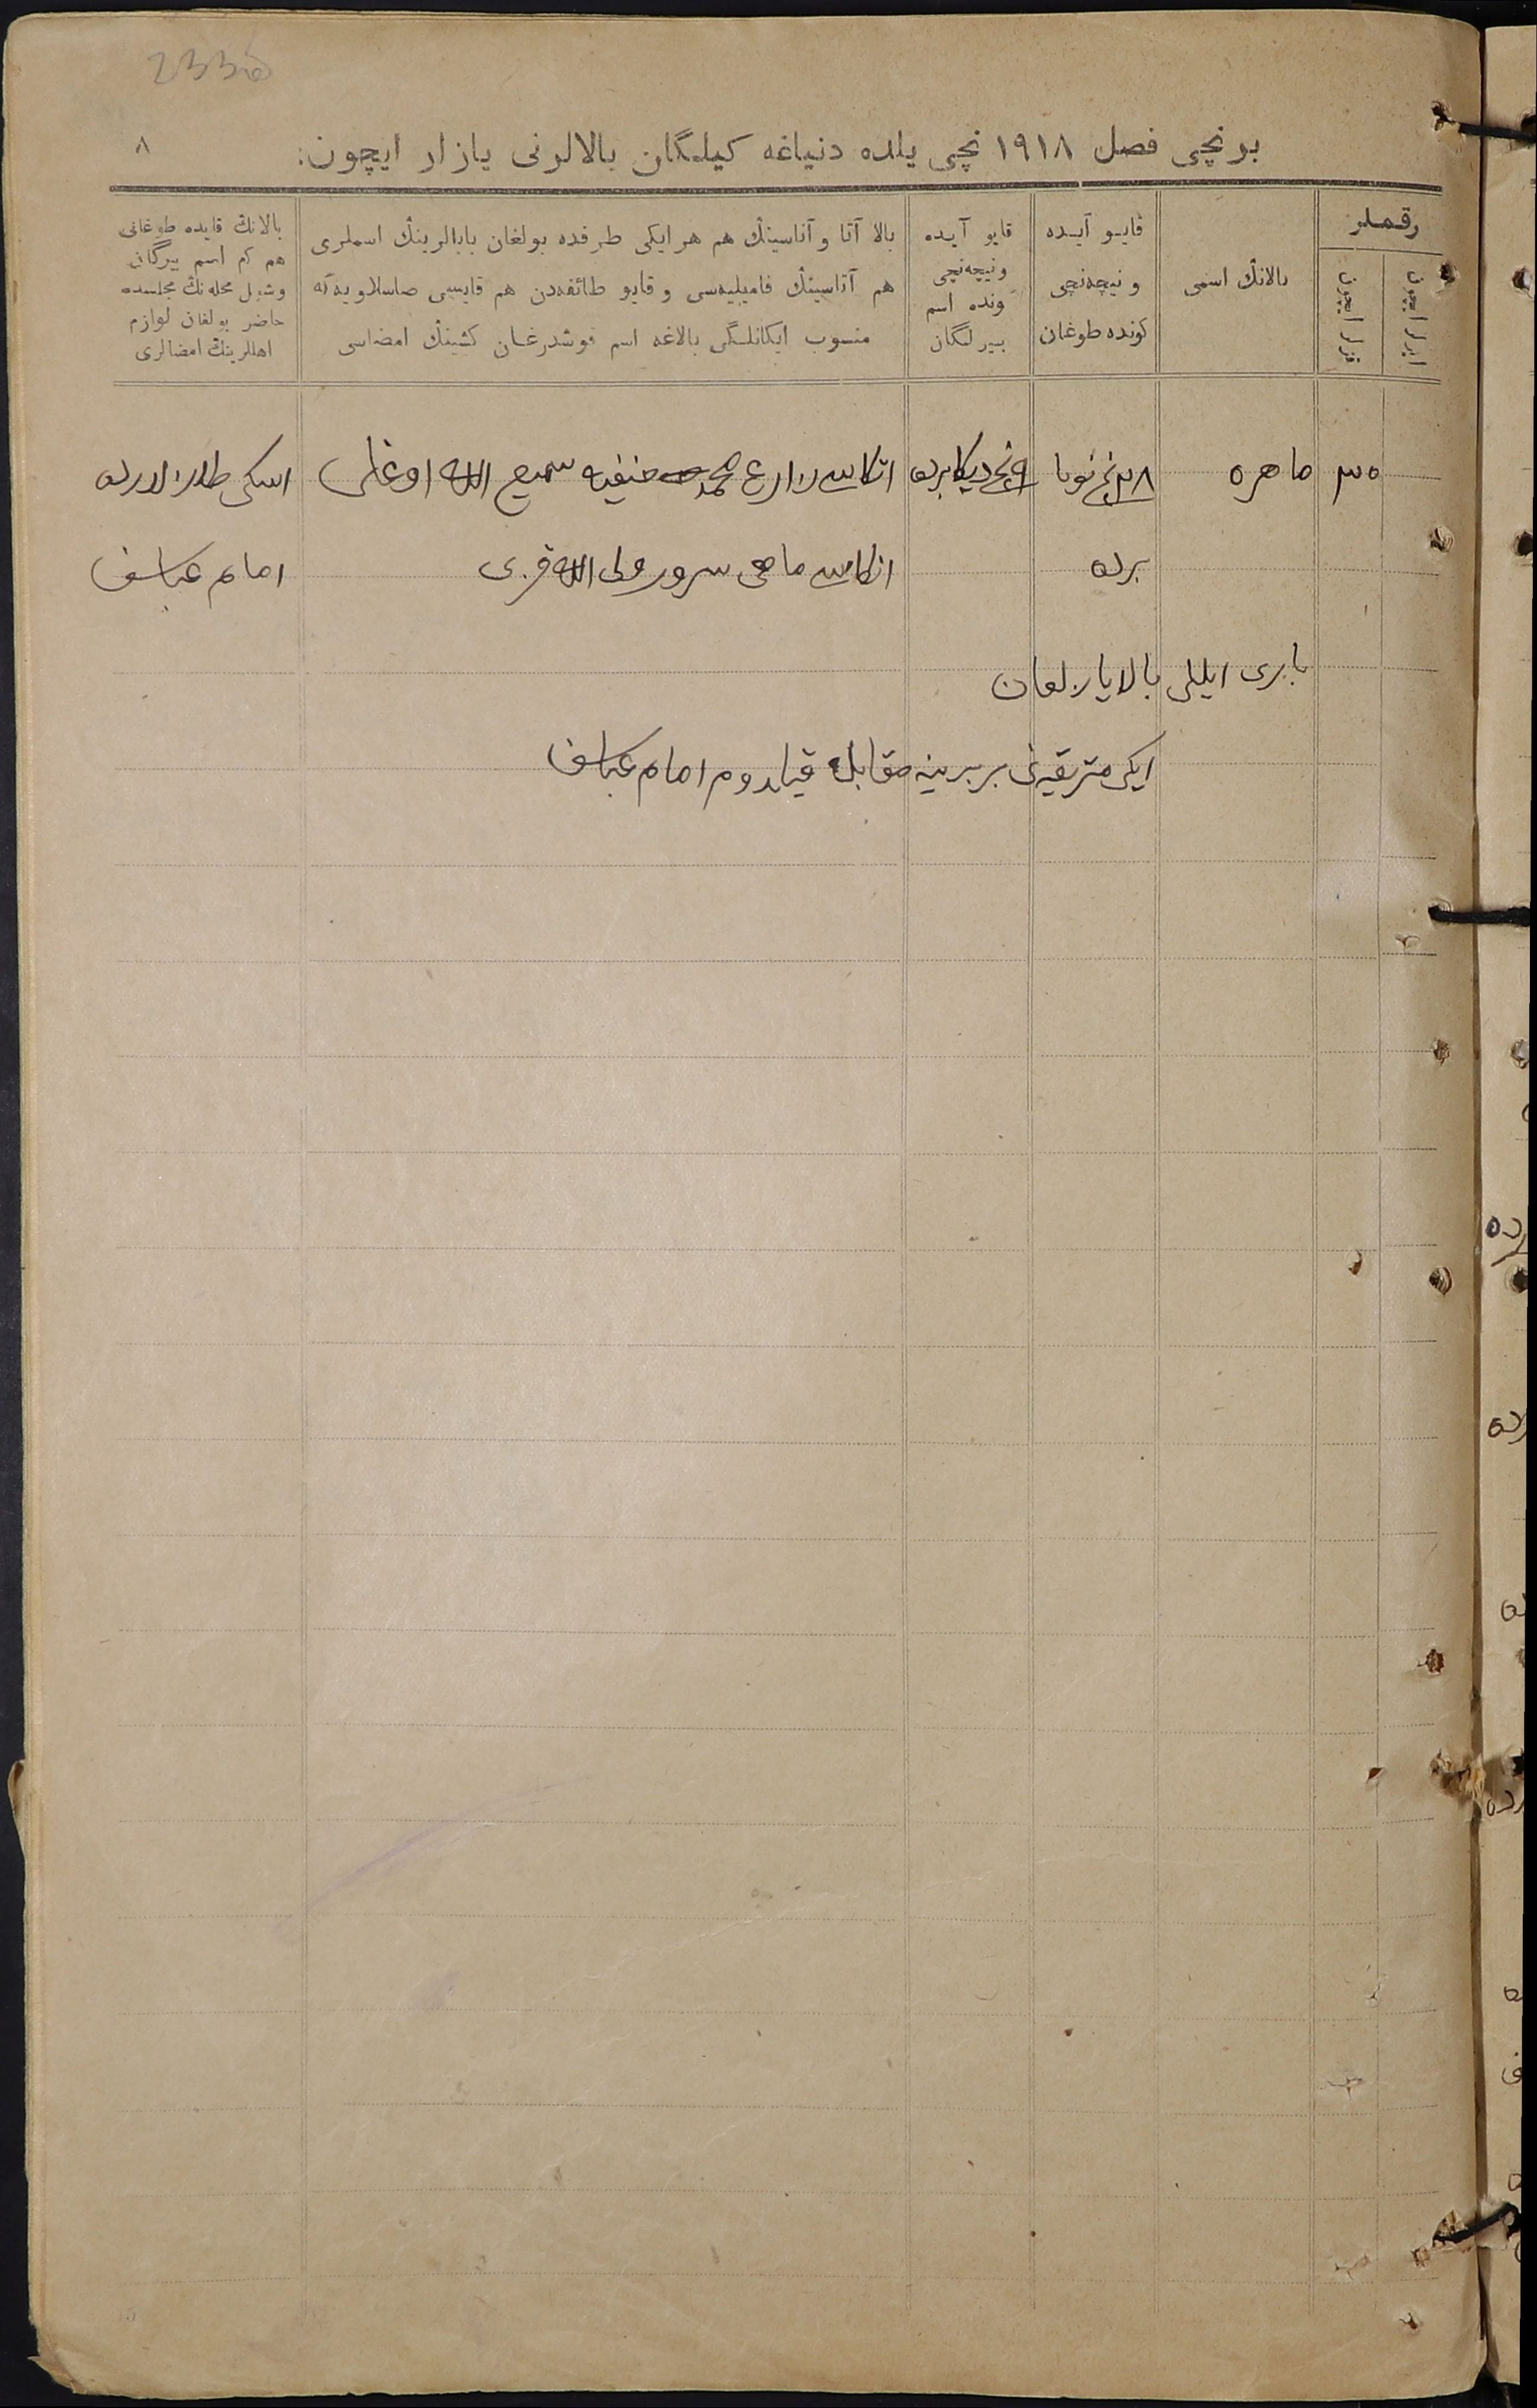 2335
برنچی فصل ١٩١٨ نچی یلده دنیاغه كیلمگان بالالرنی یازار ایچون:
٨
رقملر
ایرلر ایچون
قزلر ایچون
بالانڭ اسمی
قایو آیده
و نیچه‌نچی
كونده طوغان
قایو آیده
و نیچه‌نچی
كونده اسم
بیرلگان
بالا آتا و آناسینڭ هم هر ایكی طرفده بولغان بابالرینڭ اسملری
هم آتاسینڭ فامیلیه‌سی و قایو طائفه‌دن هم قایسی صاسلاویه‌گه
منسوب ایكانلگی بالاغه اسم قوشدرغان كشینڭ امضاسی
بالانڭ قایده طوغانی
هم كم اسم بیرگان
وشبل محله‌نڭ مجلسده
حاضر بولغان لوازم
اهللرینڭ امضالری
٣٥ ماهره ٢٨نچی نویا ٩نچی دیكابرده اتكاسی زارع محمد حنفیه سمیع الله اوغلی اسكی
برده انكاسی ماهی سرور ولی الله قزی امام عباسف
باری ایللی بالا یازلغان
ایكی متریقه‌نی بربرینه مقابله قیلدوم امام عباسف